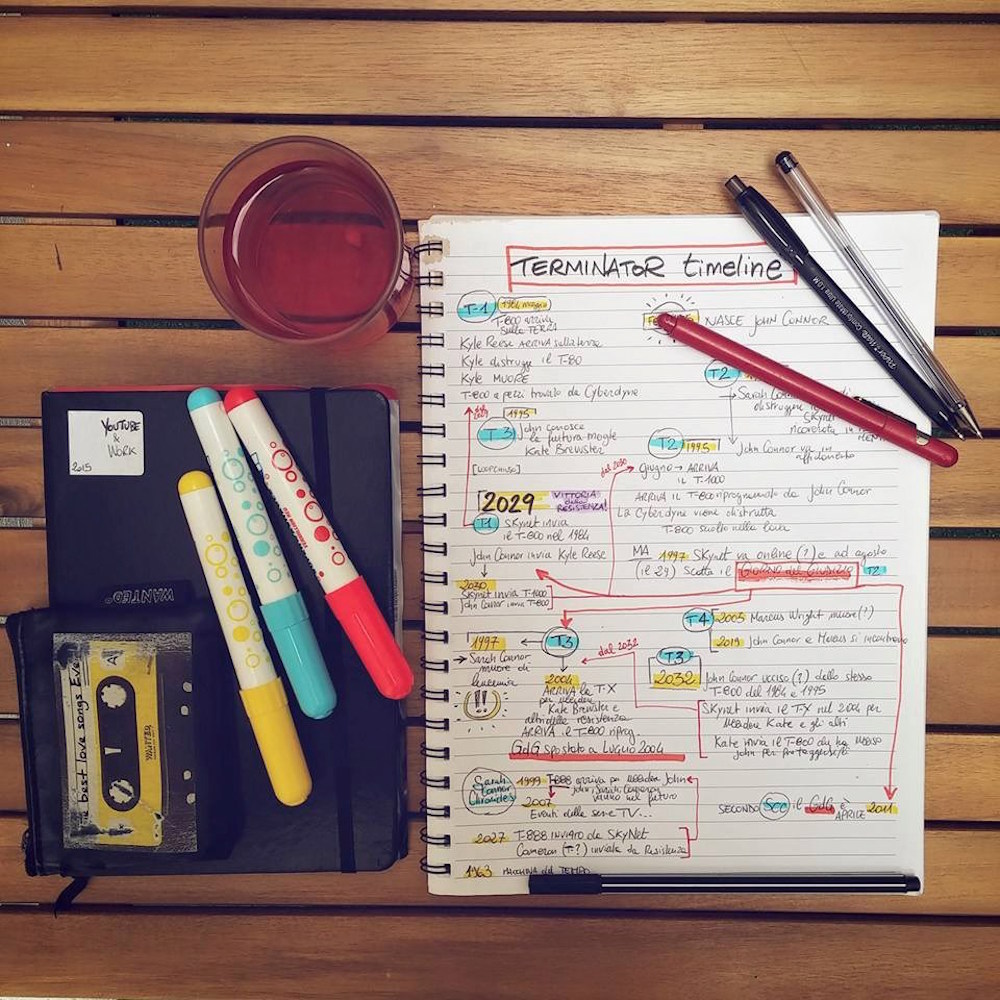 TERMINATOR timeline
T-1 1984 maggio
T-800 arriva
sulla TERRA
Kyle Reese ARRIVA sulla terra
Kyle distrugge il T-80
Kyle MUORE
T-800 a pezzi trovato da Cyberdyne
dal 2029
1995
T3 John conosce
la futura moglie
Kate Brewster
[LOOP CHIUSO]
2029 VITTORIA della RESISTENZA!
T1 SKynet invia
il T-800 nel 1984
John Connor invia Kyle Reese
2030
SKynet invia T-1000
John Connor invia T-800
NASCE JOHN CONNOR
T2
Sarah
distruggere
SKynet
ricoverata in
John Connor va in
affidamento
T2 1995
dal 2030
giugno → ARRIVA
il T-1000
ARRIVA il T-800 riprogrammato da John Connor
La Cyberdyne viene distrutta
T-800 sciolto nella lava
MA 1997 SKynet va online (?) e ad agosto
(il 29) scatta il GIORNO DEL GIUDIZIO T2
1997
Sarah Connor
muore di
leucemia
!!
T3
dal 2032
2004
ARRIVA la T-X
per uccidere
Kate Brewster e
altri della resistenza
ARRIVA il T-800 riprog.
GdG spostato a LUGLIO 2004
T4 2003 Marcus Wright muore (?)
2018 John Connor e Marcus si incontrano
T3
2032
John Connor ucciso (?) dallo stesso
T-800 del 1984 e 1995
SKynet invia il T-X nel 2004 per
uccidere Kate e gli altri
Kate invia il T-800 che ha ucciso
John per proteggerli
Sarah
Connor
Chronicles
1999 T-888 arriva per uccidere John
John, Sarah, Cameron
vanno nel futuro
2007
Eventi della serie TV...
2027 T-888 inviato da SKyNet
Cameron (T-?) inviata da Resistenza
1963 MACCHINA del TEMPO
SECONDO SCC il GdG è 2011
APRILE
YOUTUBE
&
WORK
2015
WANTED
the best love songs Ever
A